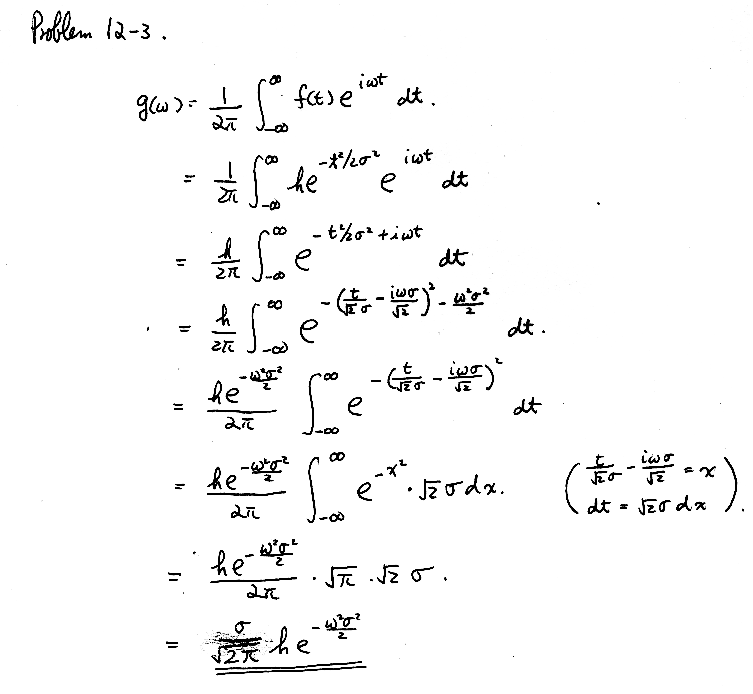 Problem 12-3.
g(ω) = 1/2π ∫_{-∞}^{∞} f(t) e^{iωt} dt.
= 1/2π ∫_{-∞}^{∞} he^{-t²/2σ²} e^{iωt} dt
= h/2π ∫_{-∞}^{∞} e^{-t²/2σ²+iωt} dt
= h/2π ∫_{-∞}^{∞} e^{-(t/√2σ - iωσ/√2)² - ω²σ²/2} dt.
= he^{-ω²σ²/2}/2π ∫_{-∞}^{∞} e^{-(t/√2σ - iωσ/√2)²} dt
= he^{-ω²σ²/2}/2π ∫_{-∞}^{∞} e^{-x²}·√2 σ dx. (t/√2σ - iωσ/√2 = x
dt = √2σ dx).
= he^{-ω²σ²/2}/2π · √π · √2 σ.
= σ/√2π he^{-ω²σ²/2}